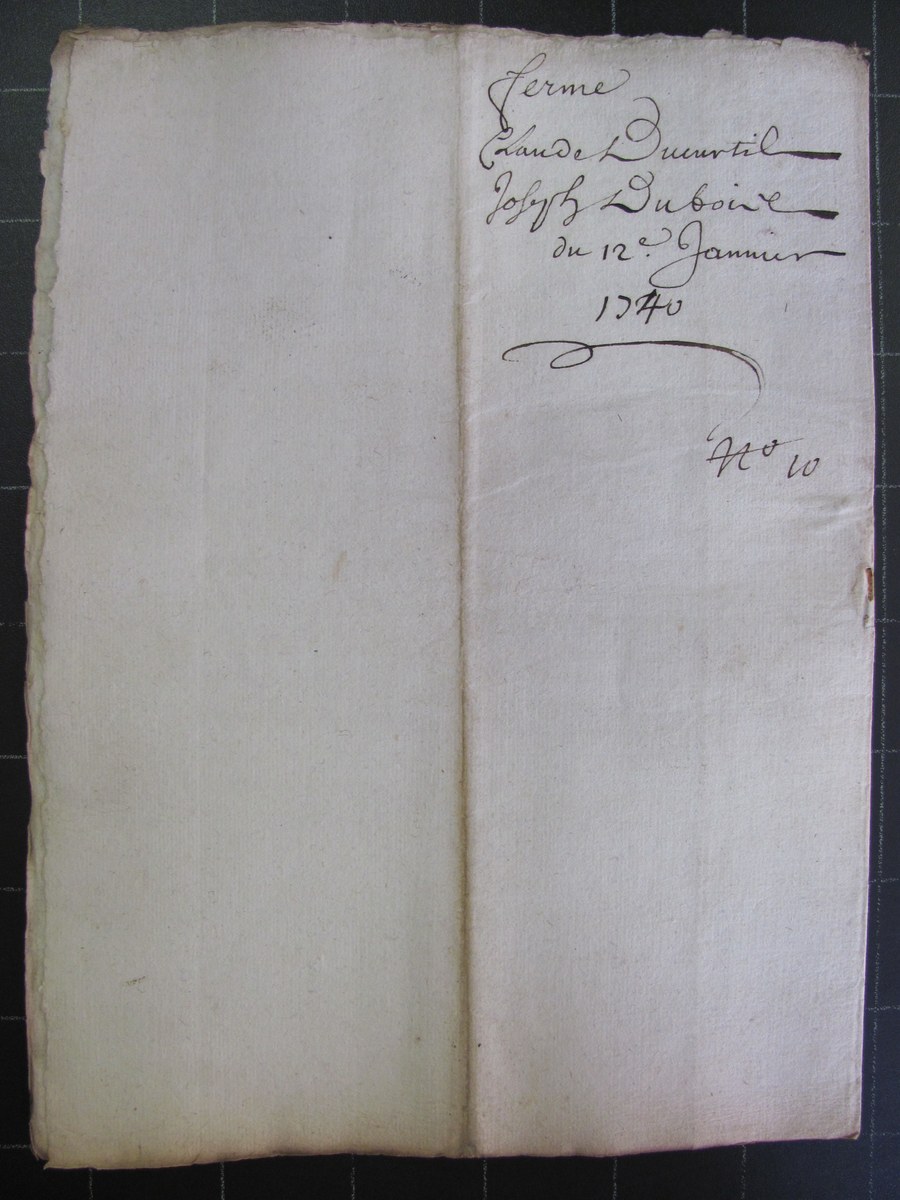 ferme
Claude Ducurtil
Joseph Duboise
du 12e. Januier
1740
No 10